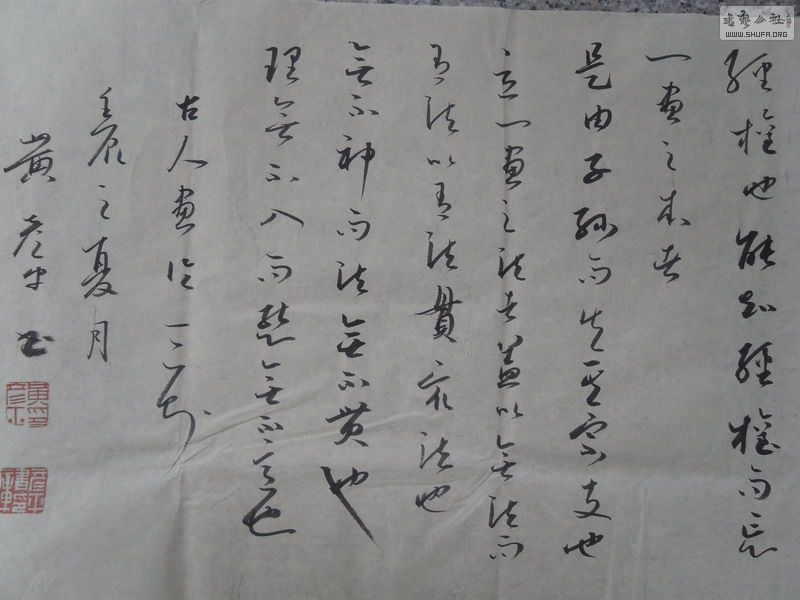 經權也能知經權而忘
一畫之本者
是由子孫而失其宗支也
立一畫之法者蓋以無法而
有法以有法貫眾法也
無不神而法無不貫也
理無不入而態無不盡也
古人畫論一二則
壬辰之夏月
黃彥平書
書藝公社
WWW.SHUFA.ORG